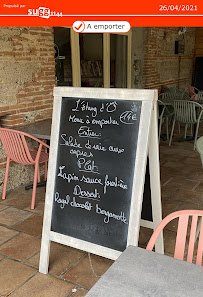 Proposé par
sugg
26/04/2021
A emporter
L'étang d'Ô
Menu à emporter 14€
Entrée
Salade de
copeaux
Plat
Lapin sauce forestière
Dessert
Royal chocolat bergamotte